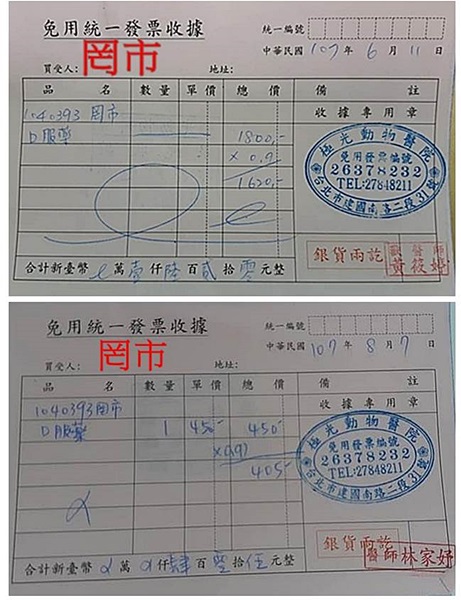 免用統一發票收據
統一編號
中華民國 107 年 6 月 11 日
買受人: 罔市 地址:
品名 數量 單價 總價 備註
1040393 罔市 收據專用章
口服藥 1800.-
x 0.9
1620.-
極光動物醫院
免用發票編號
26378232
TEL:27848211
台北市建國南路二段31號
銀貨兩訖
獸醫師
黃筱妙
合計新臺幣 萬壹仟陸百貳拾零元整
免用統一發票收據
統一編號
中華民國 107 年 8 月 7 日
買受人: 罔市 地址:
品名 數量 單價 總價 備註
1040393 罔市 收據專用章
口服藥 1 450- 450-
x0.9
405-
極光動物醫院
免用發票編號
26378232
TEL:27848211
台北市建國南路二段31號
銀貨兩訖
醫師林家妤
合計新臺幣 萬 仟肆百零拾伍元整